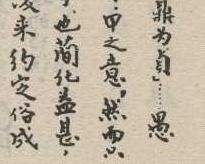 鼎为贞」……愚
甲之意，然而
也简化益甚，
後来约定俗成